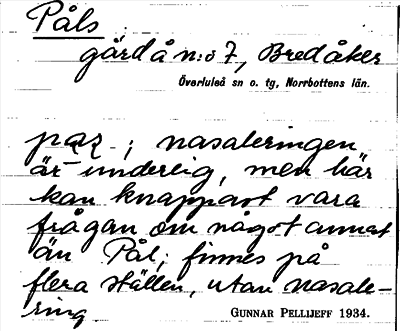 Påls
gård å n:o 7, Bredåker
Överluleå sn o. tg, Norrbottens län.
nasaleringen
är underlig, men här
kan knappast vara
frågan om något annat
än Pål; finnes på
flera ställen, utan nasale-
ring
GUNNAR PELLIJEFF 1934.